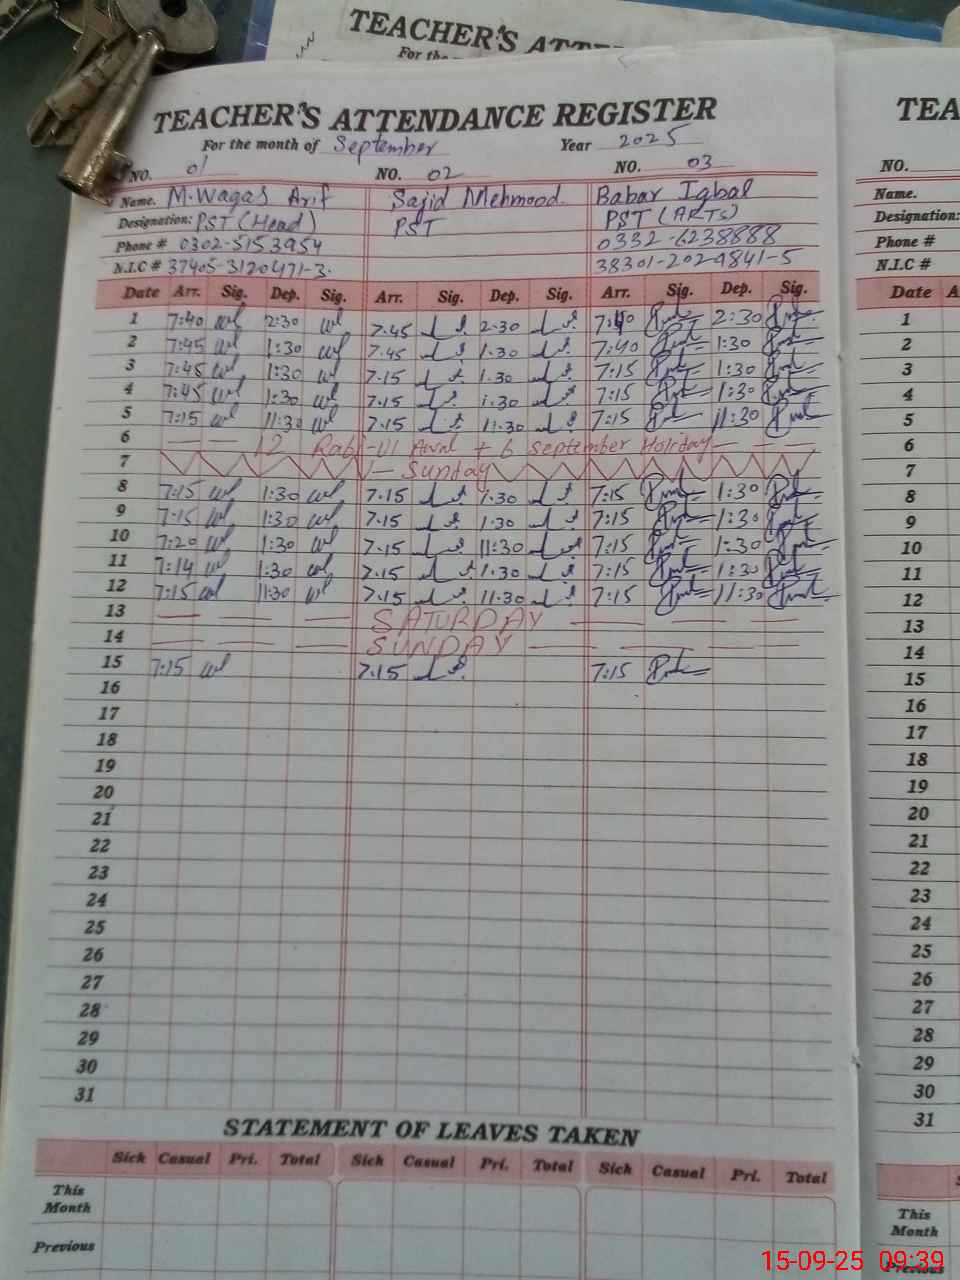 TEACHER'S ATTE
For the
TEACHER'S ATTENDANCE REGISTER
For the month of September Year 2025
NO. 01 NO. 02 NO. 03
Name. M.Waqas Arif Sajid Mehmood. Babar Iqbal
Designation: PST (Head) PST PST (ARTs)
Phone # 0302-5153954 0332-6238888
N.I.C # 37405-3120471-3. 38301-2024841-5
Date Arr. Sig. Dep. Sig. Arr. Sig. Dep. Sig. Arr. Sig. Dep. Sig.
1 7:40 2:30 7.45 2.30 7:40 2:30
2 7:45 1:30 7.45 1.30 7:40 1:30
3 7:45 1:30 7.15 1.30 7:15 1:30
4 7:45 1:30 7.15 1.30 7:15 1:30
5 7:15 11:30 7.15 11.30 7:15 11:30
6 12 Rabi-Ul Awal + 6 September Holiday
7 Sunday
8 7:15 1:30 7.15 1.30 7:15 1:30
9 7:15 1:30 7.15 1.30 7:15 1:30
10 7:20 1:30 7.15 11:30 7:15 1:30
11 7:14 1:30 7.15 1.30 7:15 1:30
12 7:15 11:30 7.15 11.30 7:15 11:30
13 SATURDAY
14 SUNDAY
15 7:15 7.15 7:15
16
17
18
19
20
21
22
23
24
25
26
27
28
29
30
31
STATEMENT OF LEAVES TAKEN
Sick Casual Pri. Total Sick Casual Pri. Total Sick Casual Pri. Total
This
Month
Previous
TEA
NO.
Name.
Designation:
Phone #
N.I.C #
Date A
1
2
3
4
5
6
7
8
9
10
11
12
13
14
15
16
17
18
19
20
21
22
23
24
25
26
27
28
29
30
31
This
Month
Previous
15-09-25 09:39